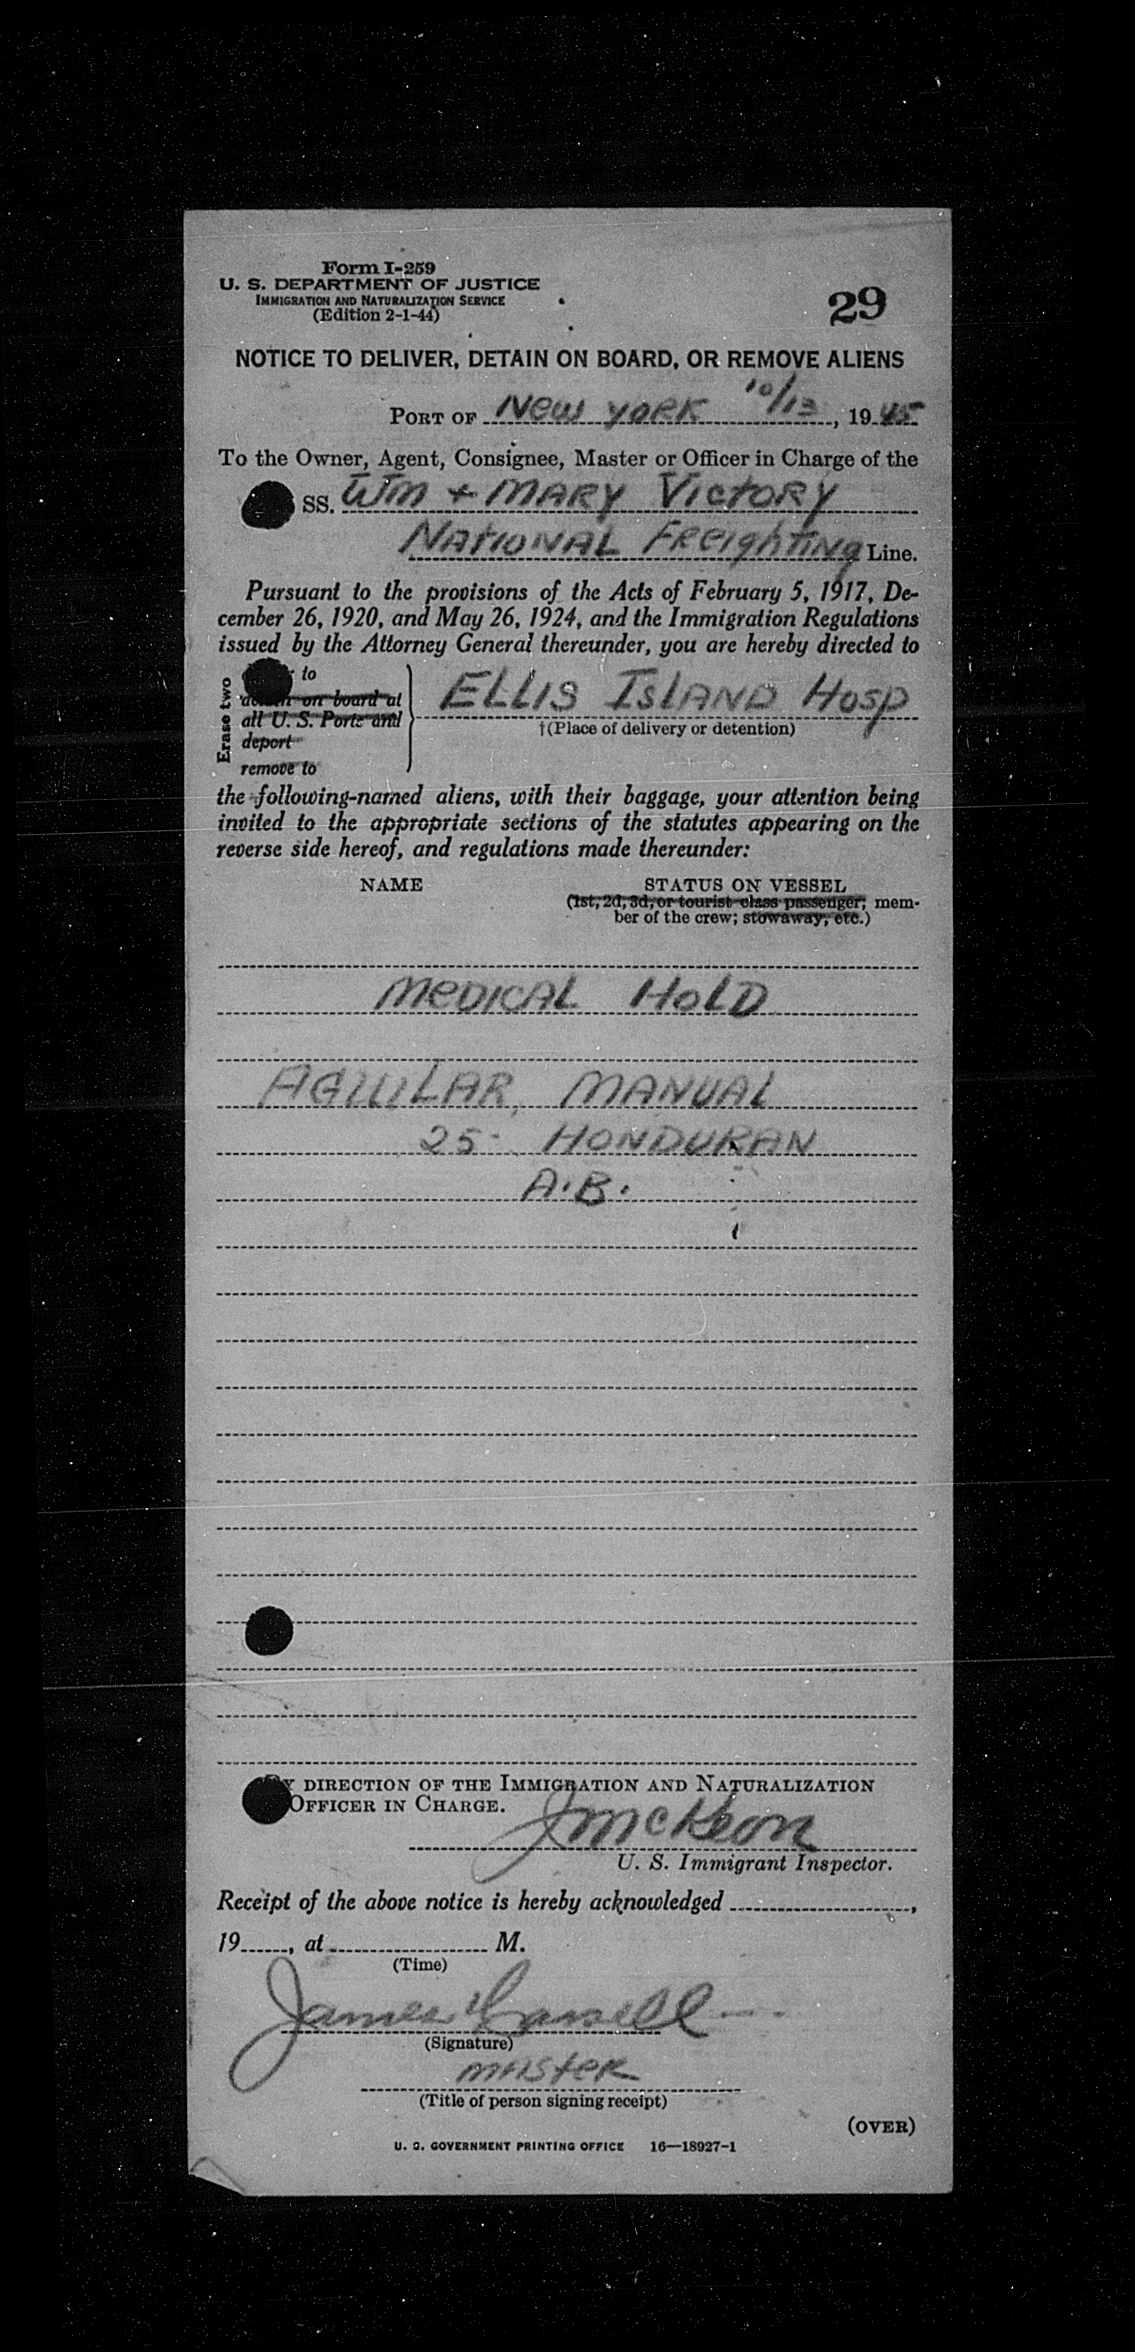 Form I-259
U. S. DEPARTMENT OF JUSTICE
IMMIGRATION AND NATURALIZATION SERVICE
(Edition 2-1-44)
29
NOTICE TO DELIVER, DETAIN ON BOARD, OR REMOVE ALIENS
PORT OF New York 10/13, 1945
To the Owner, Agent, Consignee, Master or Officer in Charge of the
SS. Wm + Mary Victory
National Freighting Line.
Pursuant to the provisions of the Acts of February 5, 1917, De-
cember 26, 1920, and May 26, 1924, and the Immigration Regulations
issued by the Attorney General thereunder, you are hereby directed to
Erase two
to
detain on board at
all U. S. Ports and
deport
remove to
ELLIS ISLAND HOSP
†(Place of delivery or detention)
the following-named aliens, with their baggage, your attention being
invited to the appropriate sections of the statutes appearing on the
reverse side hereof, and regulations made thereunder:
NAME STATUS ON VESSEL
(1st, 2d, 3d, or tourist class passenger; mem-
ber of the crew; stowaway, etc.)
MEDICAL HOLD
AGUILAR, MANUAL
25 - HONDURAN
A.B.
BY DIRECTION OF THE IMMIGRATION AND NATURALIZATION
OFFICER IN CHARGE.
J McKeon
U. S. Immigrant Inspector.
Receipt of the above notice is hereby acknowledged ,
19 , at M.
(Time)
James
(Signature)
MASTER
(Title of person signing receipt)
(OVER)
U. S. GOVERNMENT PRINTING OFFICE 16—18927-1